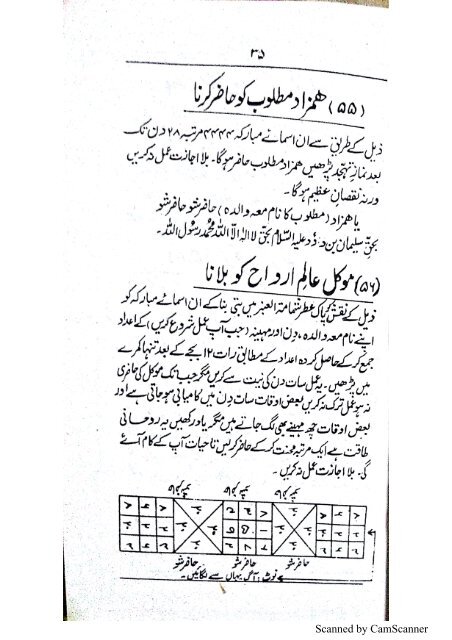 ۳۵
(۵۵) ھمزاد مطلوب کو حاضر کرنا
ذیل کے طریق سے ان اسمائے مبارکہ ۴۴۴۴ مرتبہ ۲۸ دن تک
بعد نماز تہجد پڑھیں ھمزاد مطلوب حاضر ہوگا۔ بلا اجازت عمل نہ کریں
ورنہ نقصانِ عظیم ہوگا۔
یا ھمزاد (مطلوب کا نام معہ والدہ) حاضر شو حاضر شو
بحق سلیمان بن داؤد علیہ السلام بحق لا الٰہ الا اللہ محمد رسول اللہ۔
(۵۶) موکل عالم ارواح کو بلانا
ذیل کے نقش کو پاک عطر شمامۃ العنبر میں بتی بنا کے ان اسمائے مبارکہ کو
اپنے نام معہ والدہ، دن اور مہینہ (جب آپ عمل شروع کریں) کے اعداد
جمع کر کے حاصل کردہ اعداد کے مطابق رات ۱۲ بجے کے بعد تنہا کمرے
میں پڑھیں۔ یہ عمل سات دن کی نیت سے کریں مگر جب تک موکل کی حاضری
نہ ہو عمل ترک نہ کریں بعض اوقات سات دن میں کامیابی ہو جاتی ہے اور
بعض اوقات چھ مہینے بھی لگ جاتے ہیں مگر یاد رکھیں یہ روحانی
طاقت ہے ایک مرتبہ محنت کر کے حاضر کرلیں تا حیات آپ کے کام آئے
گی۔ بلا اجازت عمل نہ کریں۔
حاضر شو حاضر شو حاضر شو
نوٹ: آگ یہاں سے لگائیں۔
Scanned by CamScanner